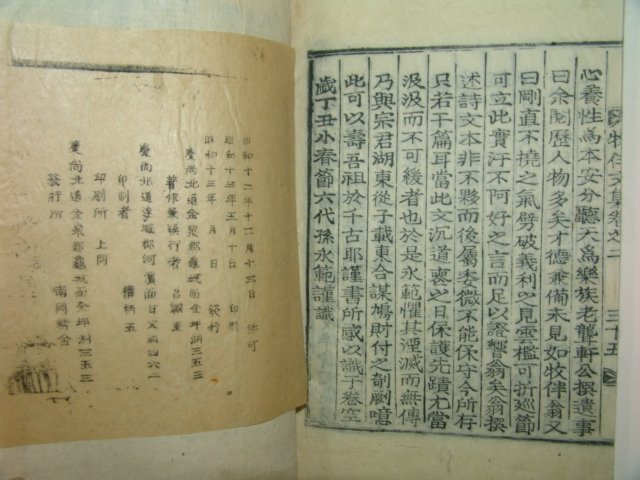 心養性爲本安分聽天爲樂族老聾軒公撰遺事
曰余閱歷人物多矣才德兼備未見如牧伴翁又
曰剛直不撓之氣劈破義利之見雲檻可折巡節
可立此實汙不阿好之言而足以證嚮翁矣翁撰
述詩文本非不夥而後屬委微不能保守今所存
只若干篇耳當此文沉道喪之日保護先蹟尤當
汲汲而不可緩者也於是永範懼其湮滅而無傳
乃與宗君湖東從子載東合謀鳩財付之剞劂噫
此可以壽吾祖於千古耶謹書所感以識于卷空
歲丁丑小春節六代孫永範謹識
牧伴文集卷之二
三十五
昭和十二年十一月十三日 許可
昭和十三年五月十日 印刷
昭和十三年 月 日 發行
慶尚北道金泉郡龜城面金坪洞三五二
著作兼發行者 呂
慶尚北道
印刷者
印刷所 上同
慶尚北道金泉郡龜城面金坪洞三五二
發行所